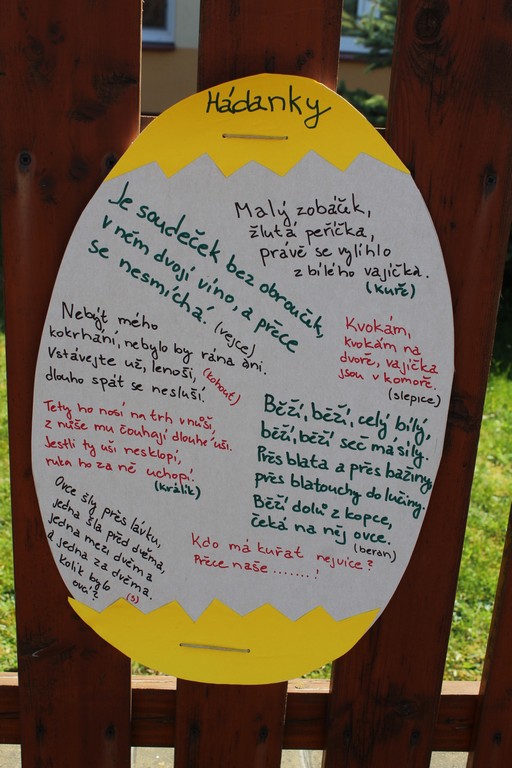 Hádanky
Je soudeček bez obrouček,
v něm dvojí víno, a přece
se nesmíchá. (vejce)
Malý zobáček,
žlutá peříčka,
právě se vylíhlo
z bílého vajíčka.
(Kuře)
Nebýt mého
kokrhání, nebylo by rána ani.
Vstávejte už, lenoši, (kohout)
dlouho spát se nesluší.
Kvokám,
kvokám na
dvoře, vajíčka
jsou v komoře.
(slepice)
Tety ho nosí na trh v nůši,
z nůše mu čouhají dlouhé uši.
Jestli ty uši nesklopí,
ruka ho za ně uchopí.
(králík)
Běží, běží, celý bílý,
běží, běží seč má síly.
Přes blata a přes bažiny,
přes blatouchy do lučiny.
Běží dolů z kopce,
čeká na něj ovce.
(beran)
Ovce šly přes lávku,
jedna šla před dvěma,
jedna mezi dvěma
a jedna za dvěma.
Kolik bylo
ovcí? (3)
Kdo má kuřat nejvíce?
Přece naše .......!